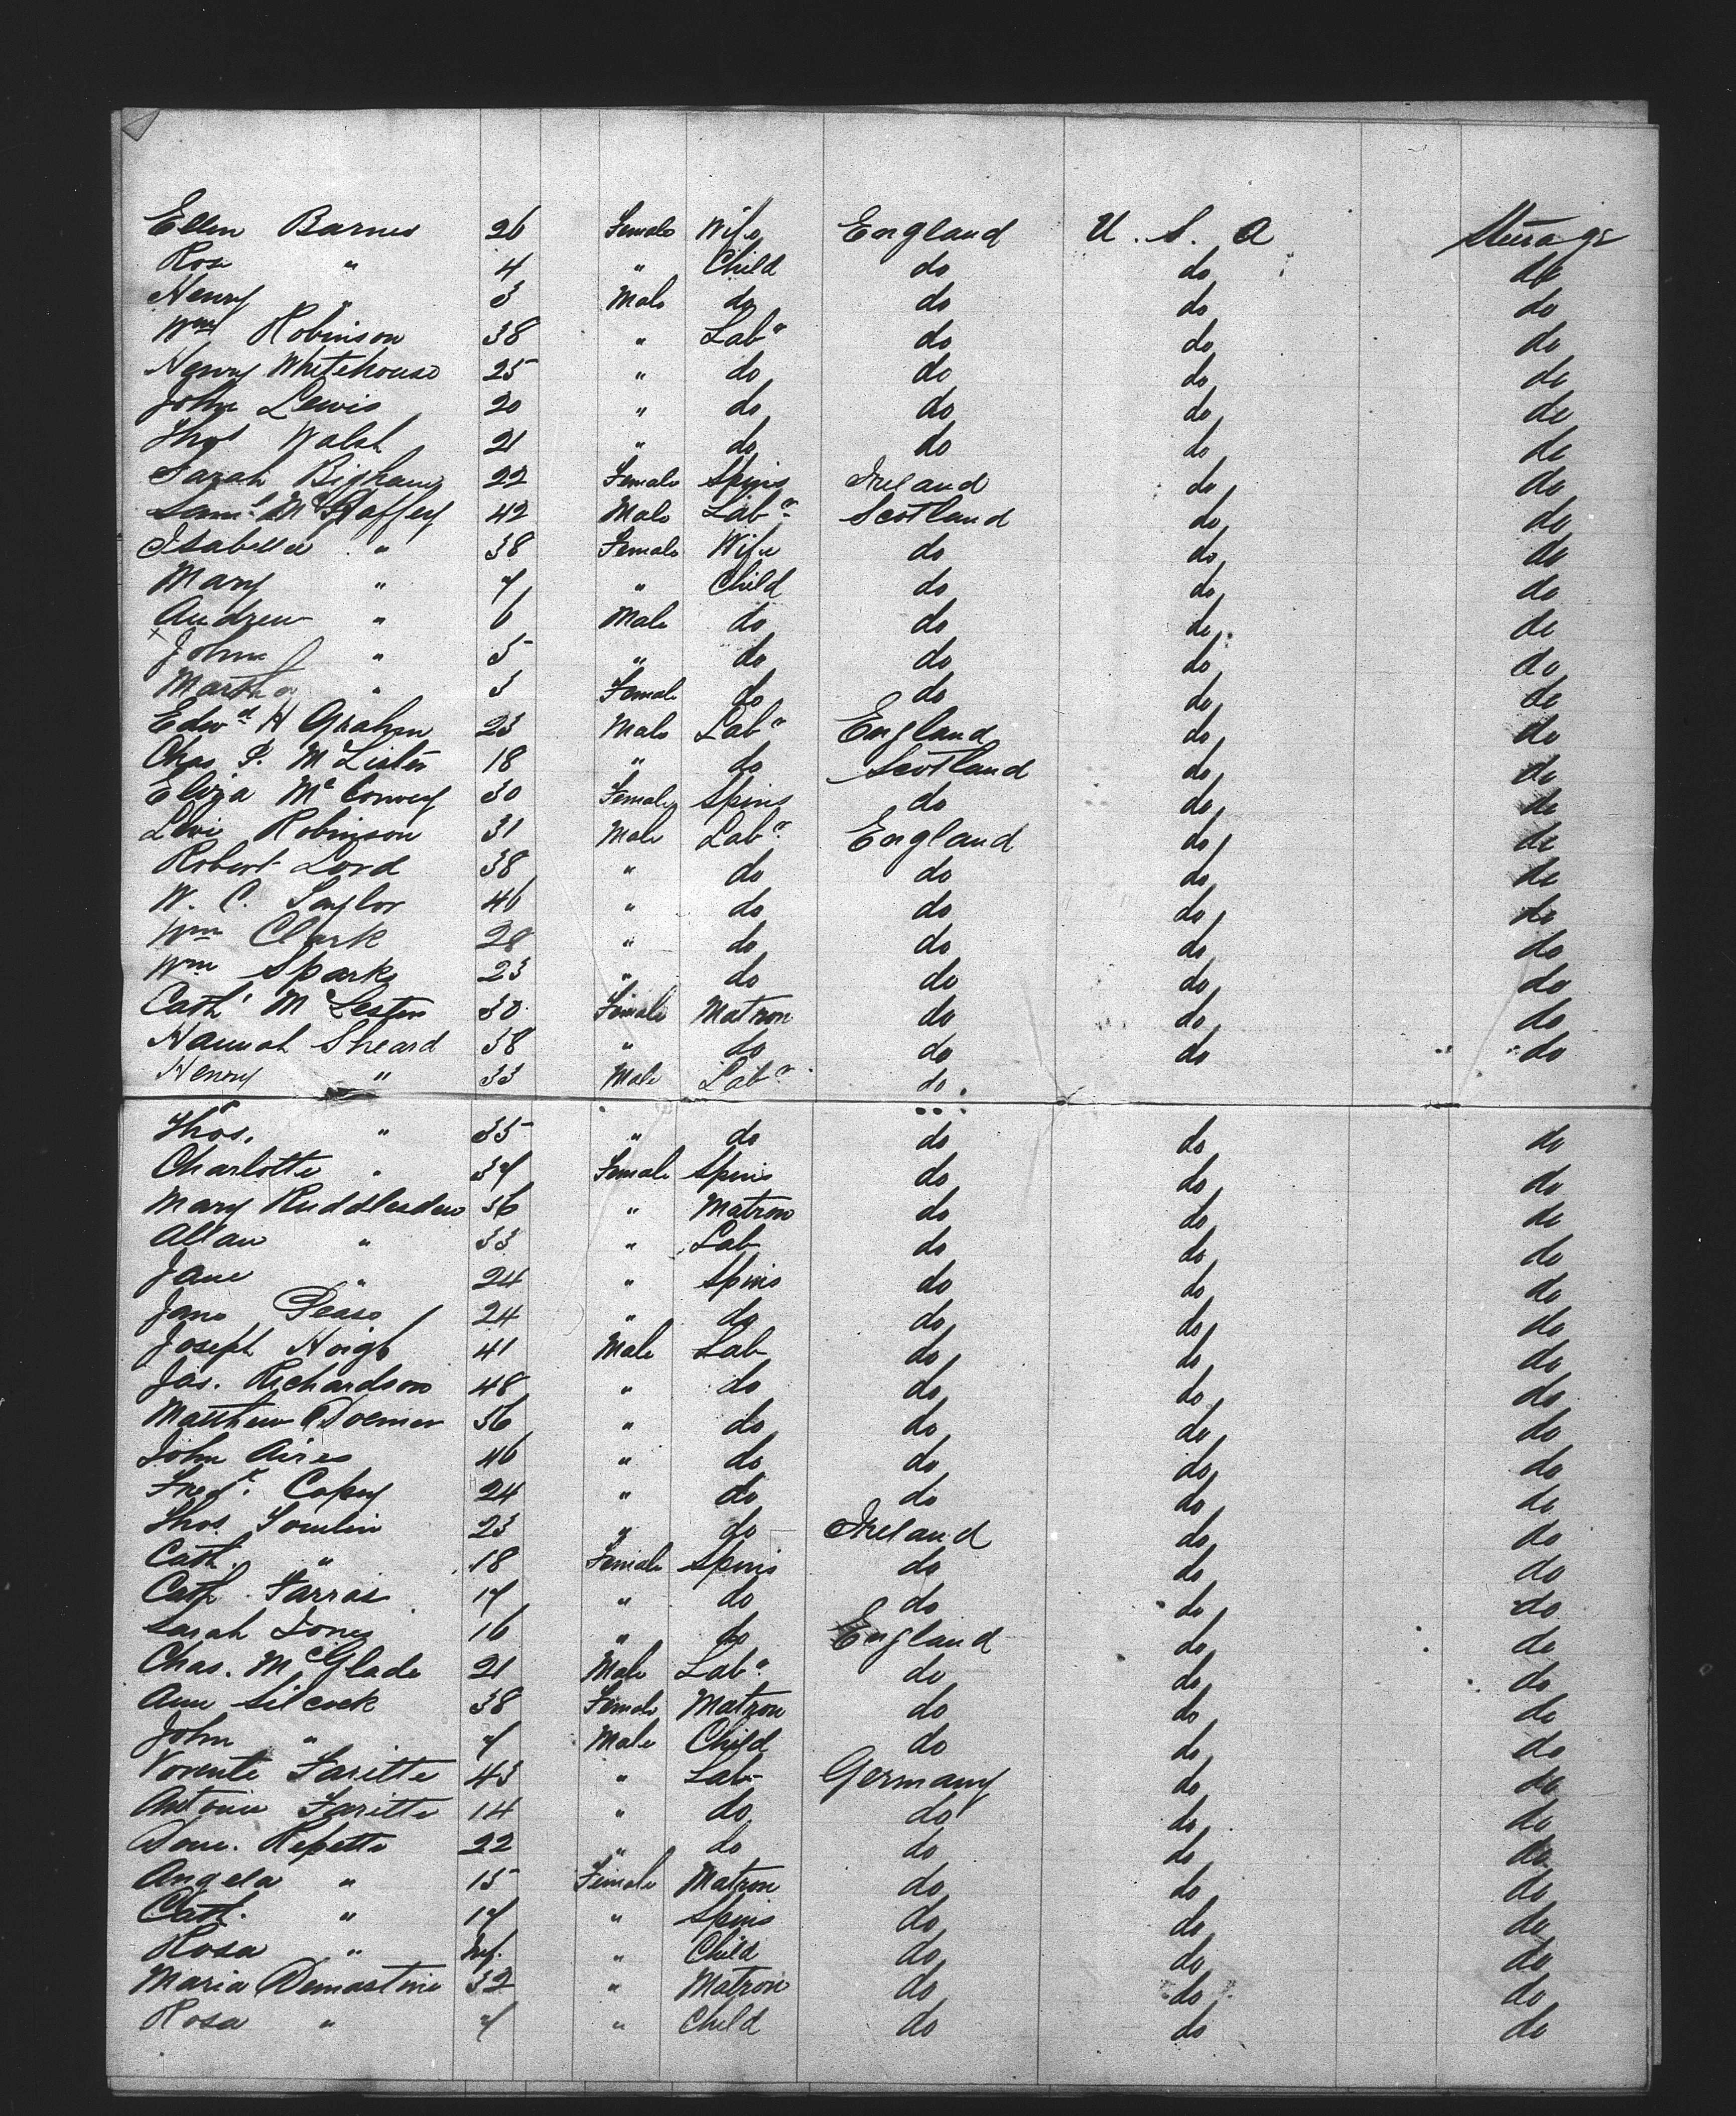 Ellen Barnes 26 Female Wife England U. S. A Steerage
Rose " 4 " Child do do do
Henry " 3 Male do do do do
Wm Robinson 38 " Labr do do do
Henry Whitehouse 25 " do do do do
John Lewis 20 " do do do do
Thos Walsh 21 " do do do do
Sarah Bigham 22 Female Spins Ireland do do
Saml Mc Raffery 42 Male Labr Scotland do do
Isabella " 38 Female Wife do do do
Mary " 7 " Child do do do
Andrew " 6 Male do do do do
John " 5 " do do do do
Martha " 3 Female do do do do
Edwd H Grahm 23 Male Labr England do do
Chas P. Mc Lister 18 " do Scotland do do
Eliza Mc Convey 30 Female Spins do do do
Levi Robinson 31 Male Labr England do do
Robert Lord 38 " do do do do
W. C. Taylor 46 " do do do do
Wm Clark 28 " do do do do
Wm Sparks 23 " do do do do
Cath Mc Lester 30 Female Matron do do do
Hannah Sheard 38 " do do do do
Henry " 33 Male Labr do
Thos. " 35 " do do do do
Charlotte " 37 Female Spins do do do
Mary Ruddlesden 56 " Matron do do do
Allan " 33 " Lab do do do
Jane " 24 " Spins do do do
Jane Pease 24 " do do do do
Joseph 41 Male Lab do do do
Jas. Richardson 48 " do do do do
Matthew 56 " do do do do
John Aires 46 " do do do do
Fredk. Copey 24 " do do do do
Thos Tomlin 23 " do Ireland do do
Cath. " 18 Female Spins do do do
Cath Farras 17 " do do do do
Sarah Jones 16 " do England do do
Chas. Mc Glade 21 Male Labr do do do
Ann Silcock 38 Female Matron do do do
John " 7 Male Child do do do
Faritte 43 " Lab Germany do do
Antonn Faritte 14 " do do do do
Dom. Repetti 22 " do do do do
Angela " 15 Female Matron do do do
Cath. " 17 " Spins do do do
Rosa " Inf. " Child do do do
Maria Demartini 32 " Matron do do do
Rosa " 7 " Child do do do